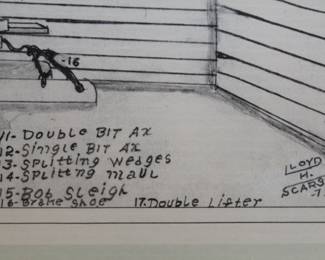 -16
11- Double BIT Ax
12- Single BIT Ax
13- Splitting wedges
14- Splitting maul
15- Bob Sleigh
16- Brake Shoe 17. Double Lifter
LLOYD
H.
SCARS
-7